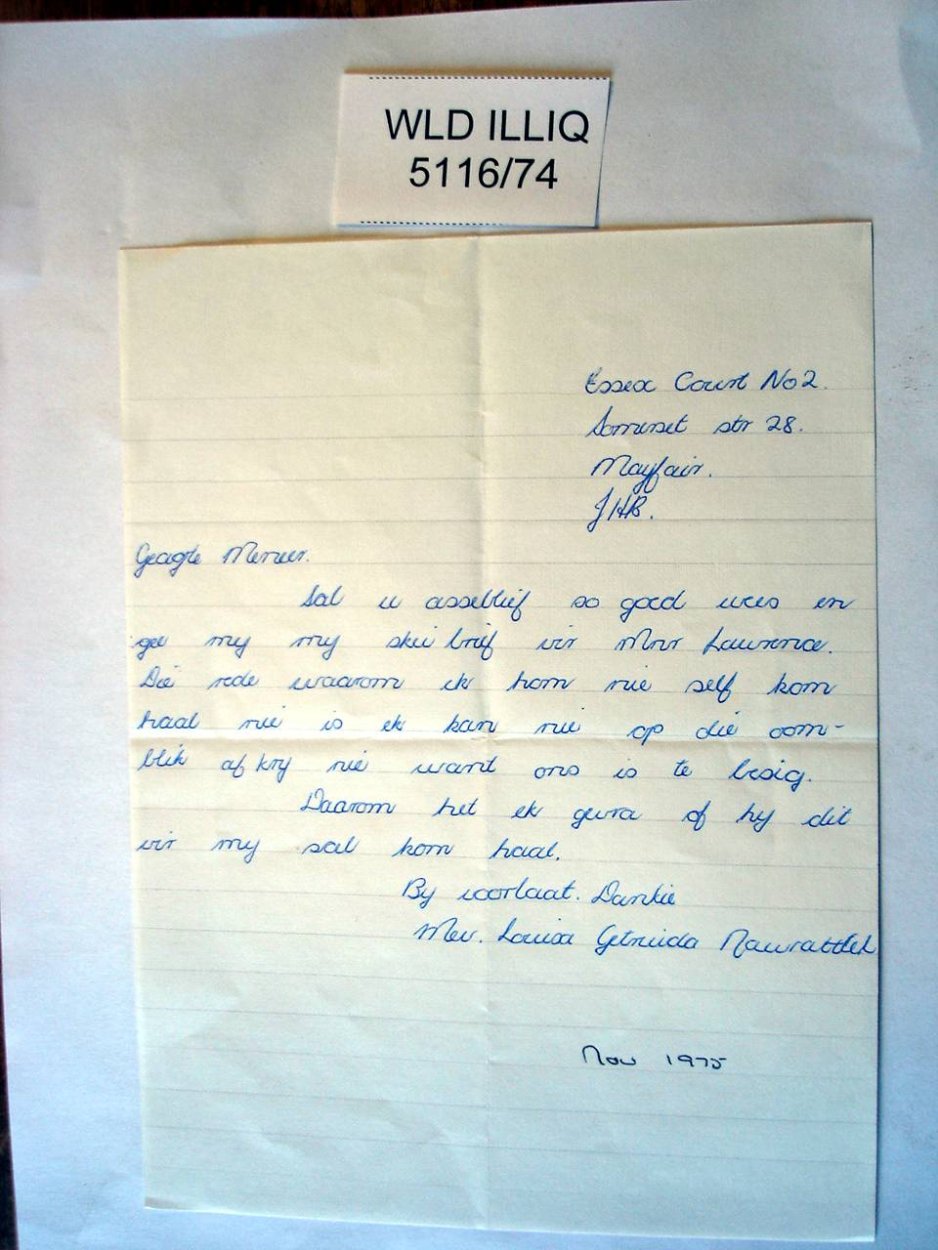 WLD ILLIQ
5116/74
Essex Court No 2.
Somerset str 28.
Mayfair.
JHB.
Geagte Meneer.
Sal u asseblief so goed wees en
gee my my skei brief vir Mnr Lawrence.
Die rede waarom ek hom nie self kom
haal nie is ek kan nie op die oom-
blik af kry nie want ons is te besig.
Daarom het ek gevra of hy dit
vir my sal kom haal.
By voorbaat. Dankie
Mev. Louisa Getruida
Nov 1975